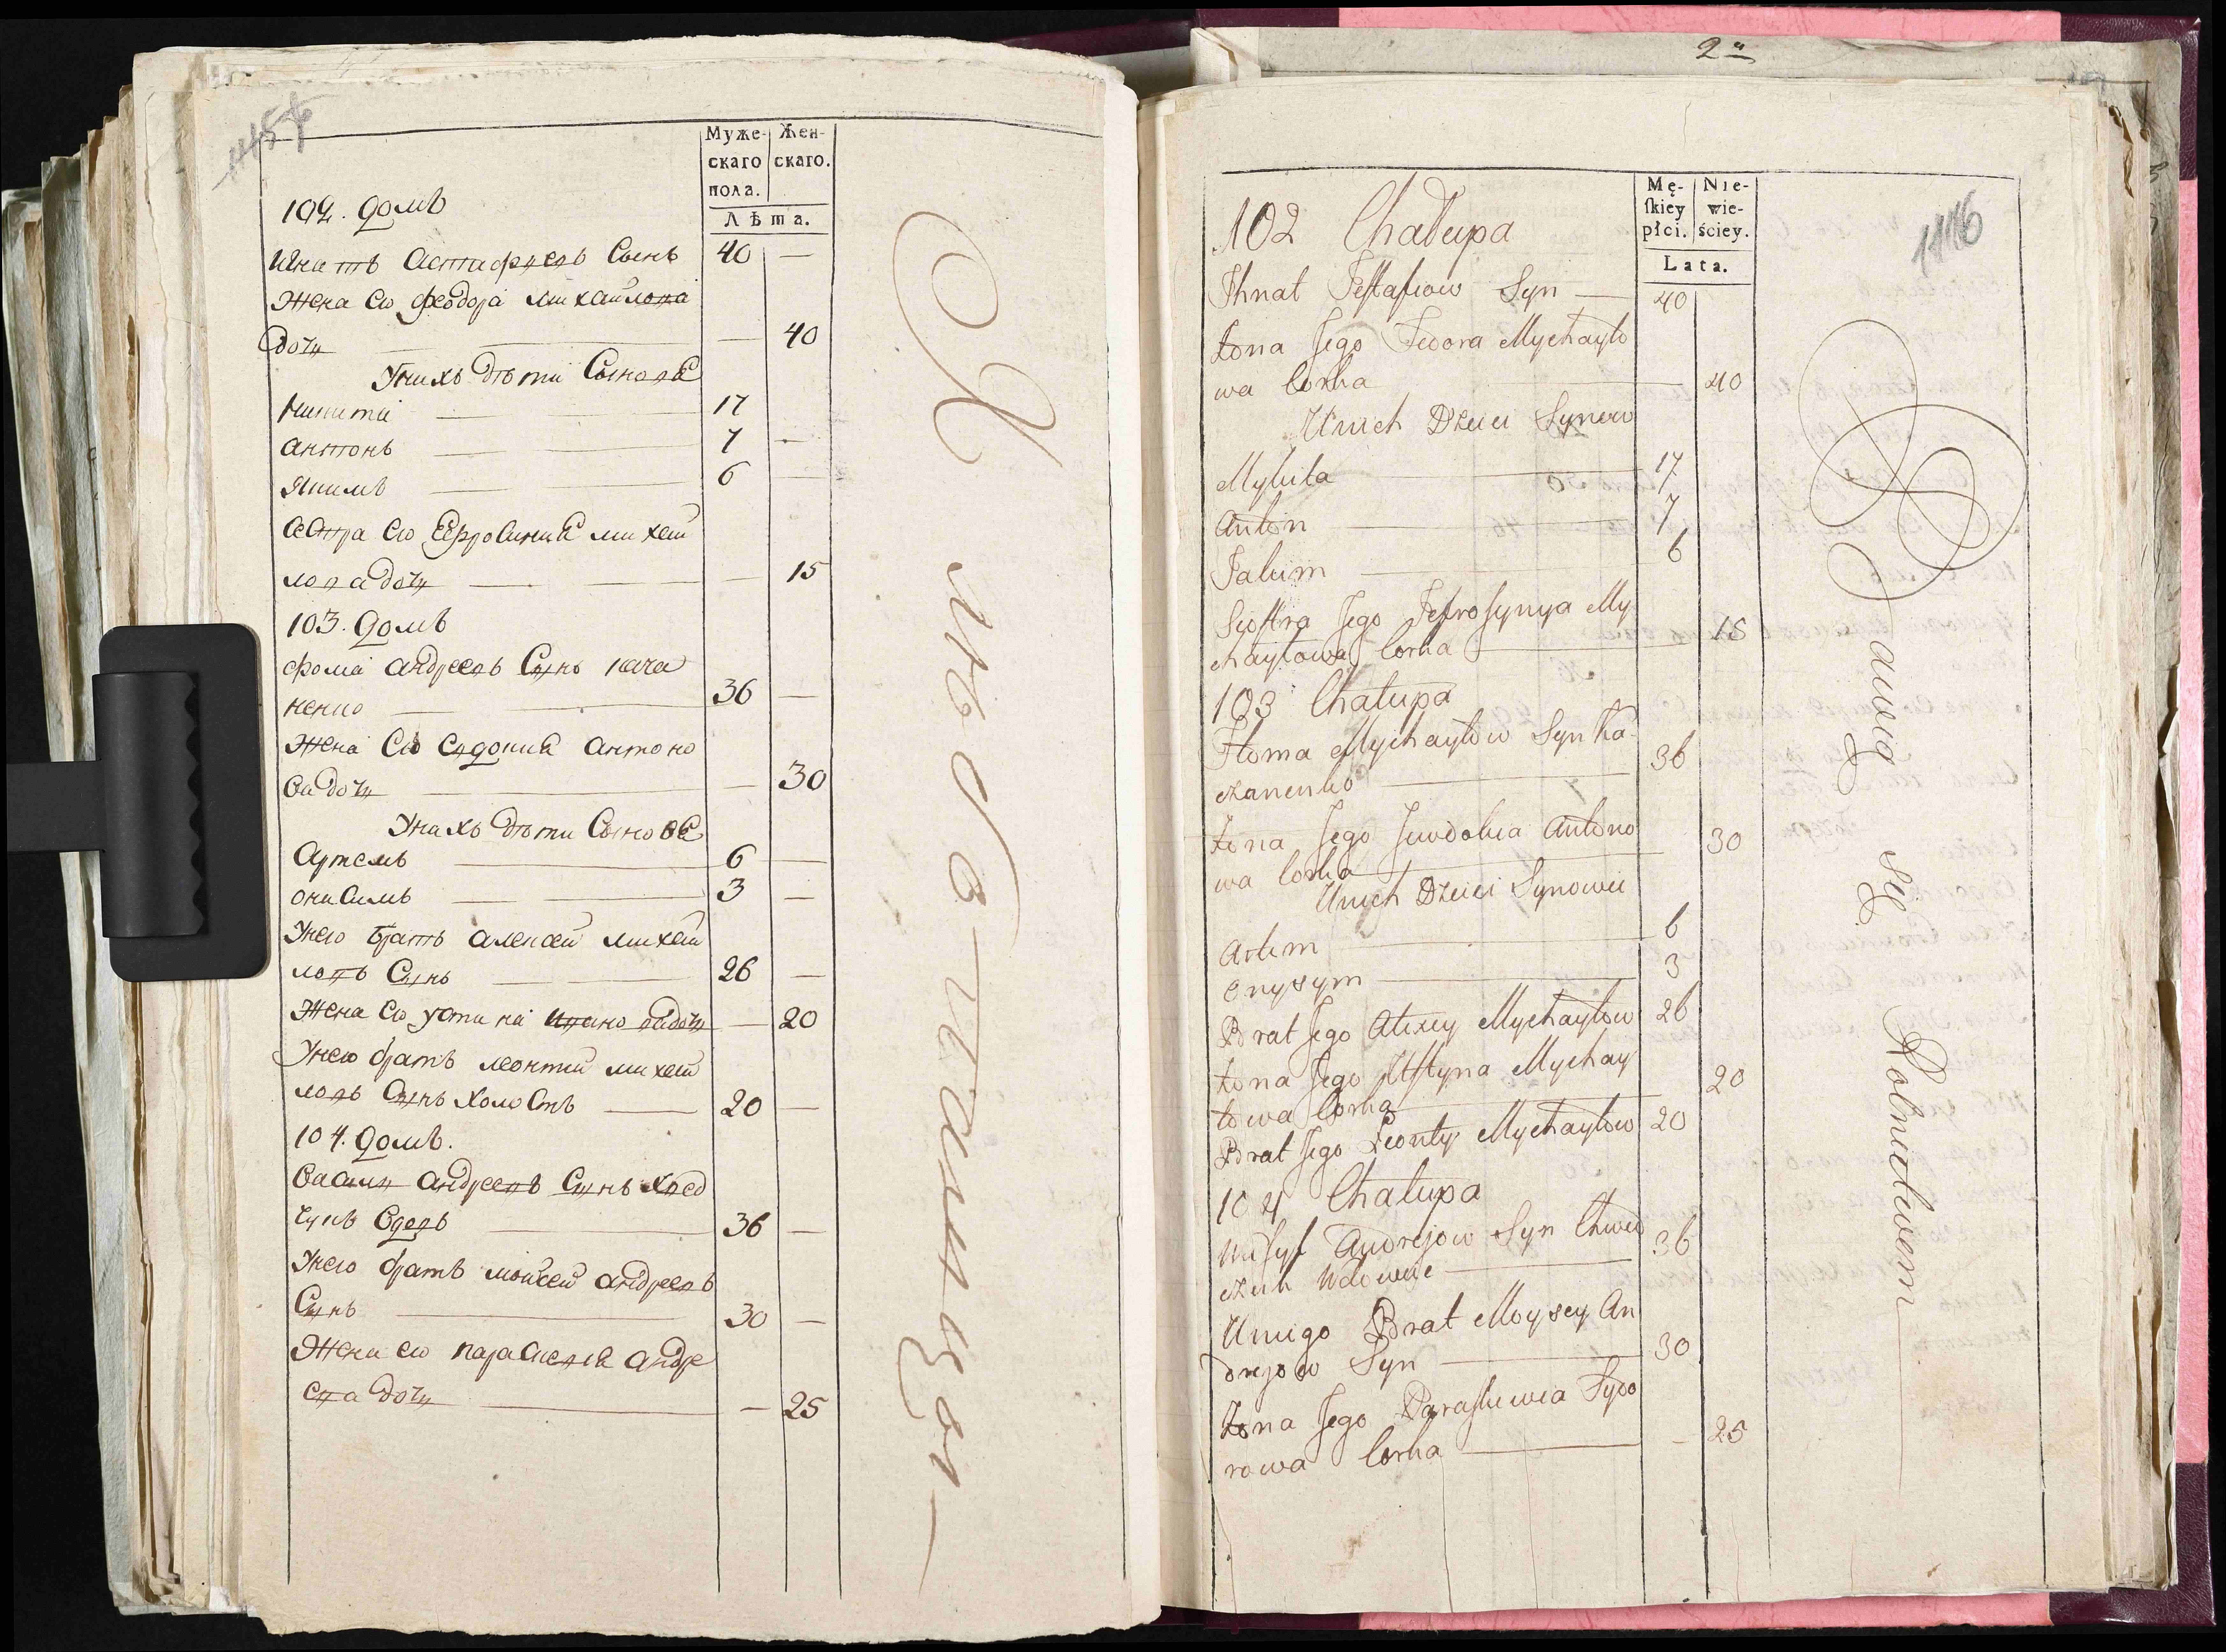 Муже-
скаго
пола.
Жен-
скаго.
Лѣта.
102. домъ
Игнатъ Астафіевъ Сынъ 40 —
Жена Ею Феодора михайлова
дочъ — 40
У нихъ дѣти Сыновѣ
Никита 17
Антонъ 7 —
Якимъ 6 —
Сестра Ею Ефросиниѣ михай
лова дочъ — 15
103. домъ
Фома андреевъ Сынъ кача
ненко 36 —
Жена Ею Евдокиѣ антоно
ва дочъ — 30
У нихъ дѣти Сыновѣ
Артемъ 6 —
онисимъ 3 —
У нею братъ алексей михай
ловъ Сынъ 26 —
Жена Ею устина ивано вадочъ — 20
У нею братъ леонтий михай
ловъ Сынъ холостъ 20 —
104. домъ.
Василъ андреевъ Сынъ Хвед
чукъ вдовъ 36 —
У нею братъ мойсей андреевъ
Сынъ 30 —
Жена ею параскевиѣ андре
ева дочъ — 25
Хлебопашцы
2
Mę-
skiey
płci.
Nie-
wie-
ściey.
Lata.
1116
102 Chałupa
Ihnat Jestafiow Syn — 40
żona Jego Fedora Mychayło
wa Corka 40
U nich Dzieci Synow
Mykita 17
Anton 7
Jakim 6
Siostra Jego Jefrosynya My
chayłowa Corka 15
103 Chałupa
Thoma Mychayłow Syn Ka-
czanenko 36
żona Jego Jewdokia Antono
wa Corka 30
U nich Dzieci Synowie
Artem 6
Onysym 3
Brat Jego Alexey Mychayłow 26
żona Jego Ustyna Mychay
łowa Corka 20
Brat Jego Leonty Mychayłow 20
104 Chałupa
Wasyl Andrejow Syn Chwed
czuk Wdowiec 36
U niego Brat Moysey An
drejow Syn 30
żona Jego Paraskiewia Sydo
rowa Corka — 25
Bawią się Rolnictwem